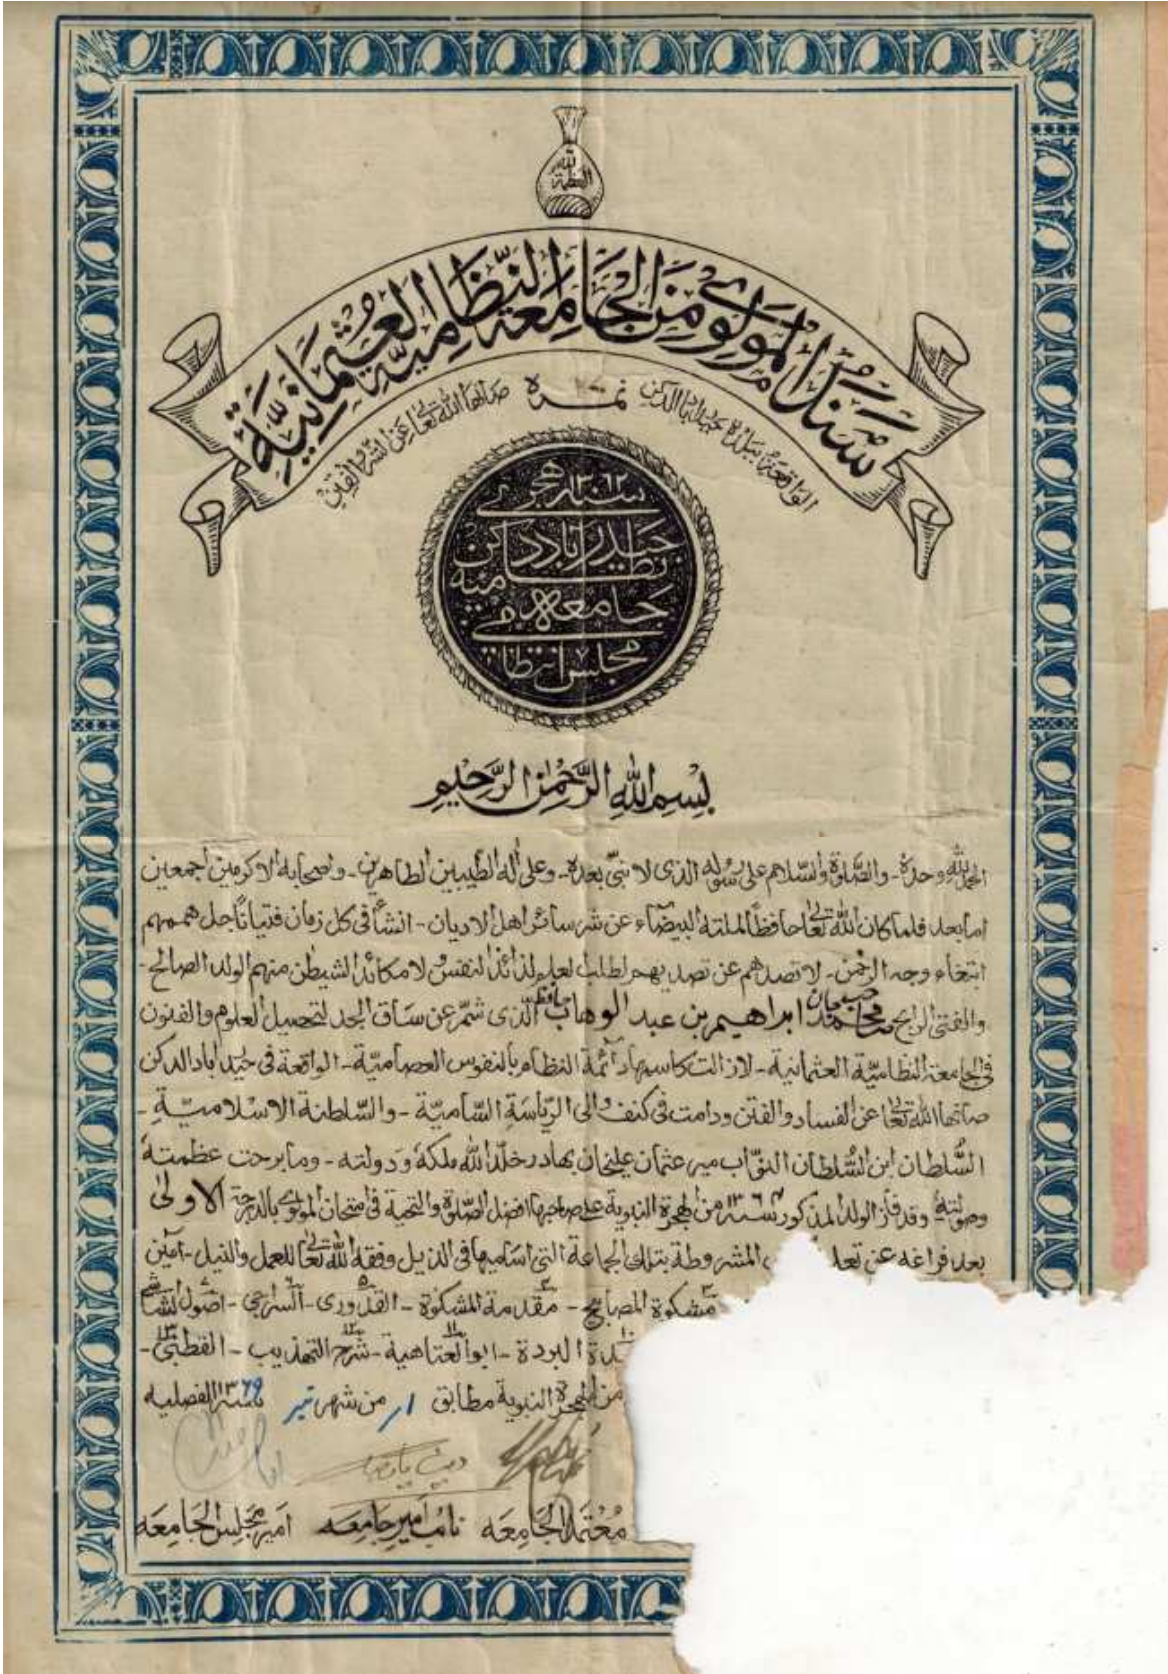 العظمة لله
سند المولوي من الجامعة النظامية العثمانية
الواقعة ببلدة حيدرآباد الدكن
نمره
صانها الله تعالى عن الشر والفتن
سنه ۱۲۹۲ هجری
حیدرآباد دکن
جامعه نظامیه
مجلس انتظامی
بِسْمِ اللهِ الرَّحْمٰنِ الرَّحِيْمِ
الحمد لله وحده - والصلوة والسلام على رسوله الذى لا نبى بعده - وعلى آله الطيبين الطاهرين - واصحابه الاكرمين اجمعين
اما بعد فلما كان الله تعالى حافظا لملته البيضاء عن شر سائر اهل الاديان - انشأ فى كل زمان فتيانا جل هممهم
ابتغاء وجه الرحمن - لا تصدهم عن تصديهم لطلب العلم لذائذ النفس ولا مكائد الشيطن منهم الولد الصالح -
والفتى الرابح محمد ابراهيم بن عبد الوهاب الذى شمر عن ساق الجد لتحصيل العلوم والفنون
فى الجامعة النظامية العثمانية - لا زالت كاسمها دائمة النظام بالنفوس العصامية - الواقعة فى حيدرآباد الدكن
صانها الله تعالى عن الفساد والفتن ودامت فى كنف والى الرياسة السامية - والسلطنة الاسلامية -
السلطان ابن السلطان النواب مير عثمان عليخان بهادر خلد الله ملكه ودولته - وما برحت عظمته
وصولته وقد فاز الولد المذكور من الهجرة النبوية على صاحبها افضل الصلوة والتحية فى امتحان المولوى بالدرجة الاولى
بعد فراغه عن تعل المشروطة بتلك الجماعة التى اساميها فى الذيل وفقه الله تعالى للعمل والنيل - آمين
مشكوة المصابيح - مقدمة المشكوة - القدورى - السراجى - اصول الشاشى
البردة - ابو العتاهية - شرح التهذيب - القطبى -
من الهجرة النبوية مطابق ۱ر من شهر تير سنه ۱۳۶۹ الفصليه
معتمد الجامعه نائب امير جامعه امير مجلس الجامعه